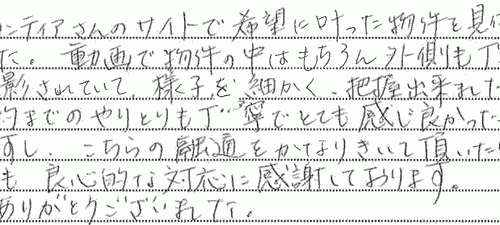 ンティアさんのサイトで希望に叶った物件を見
た。動画で物件の中はもちろん外側も丁
影されていて、様子を細かく、把握出来ました
までのやりとりも丁寧でとても感じ良かった
すし、こちらの融通をかなりきいて頂いた
も良心的な対応に感謝しております。
ありがとうございました。